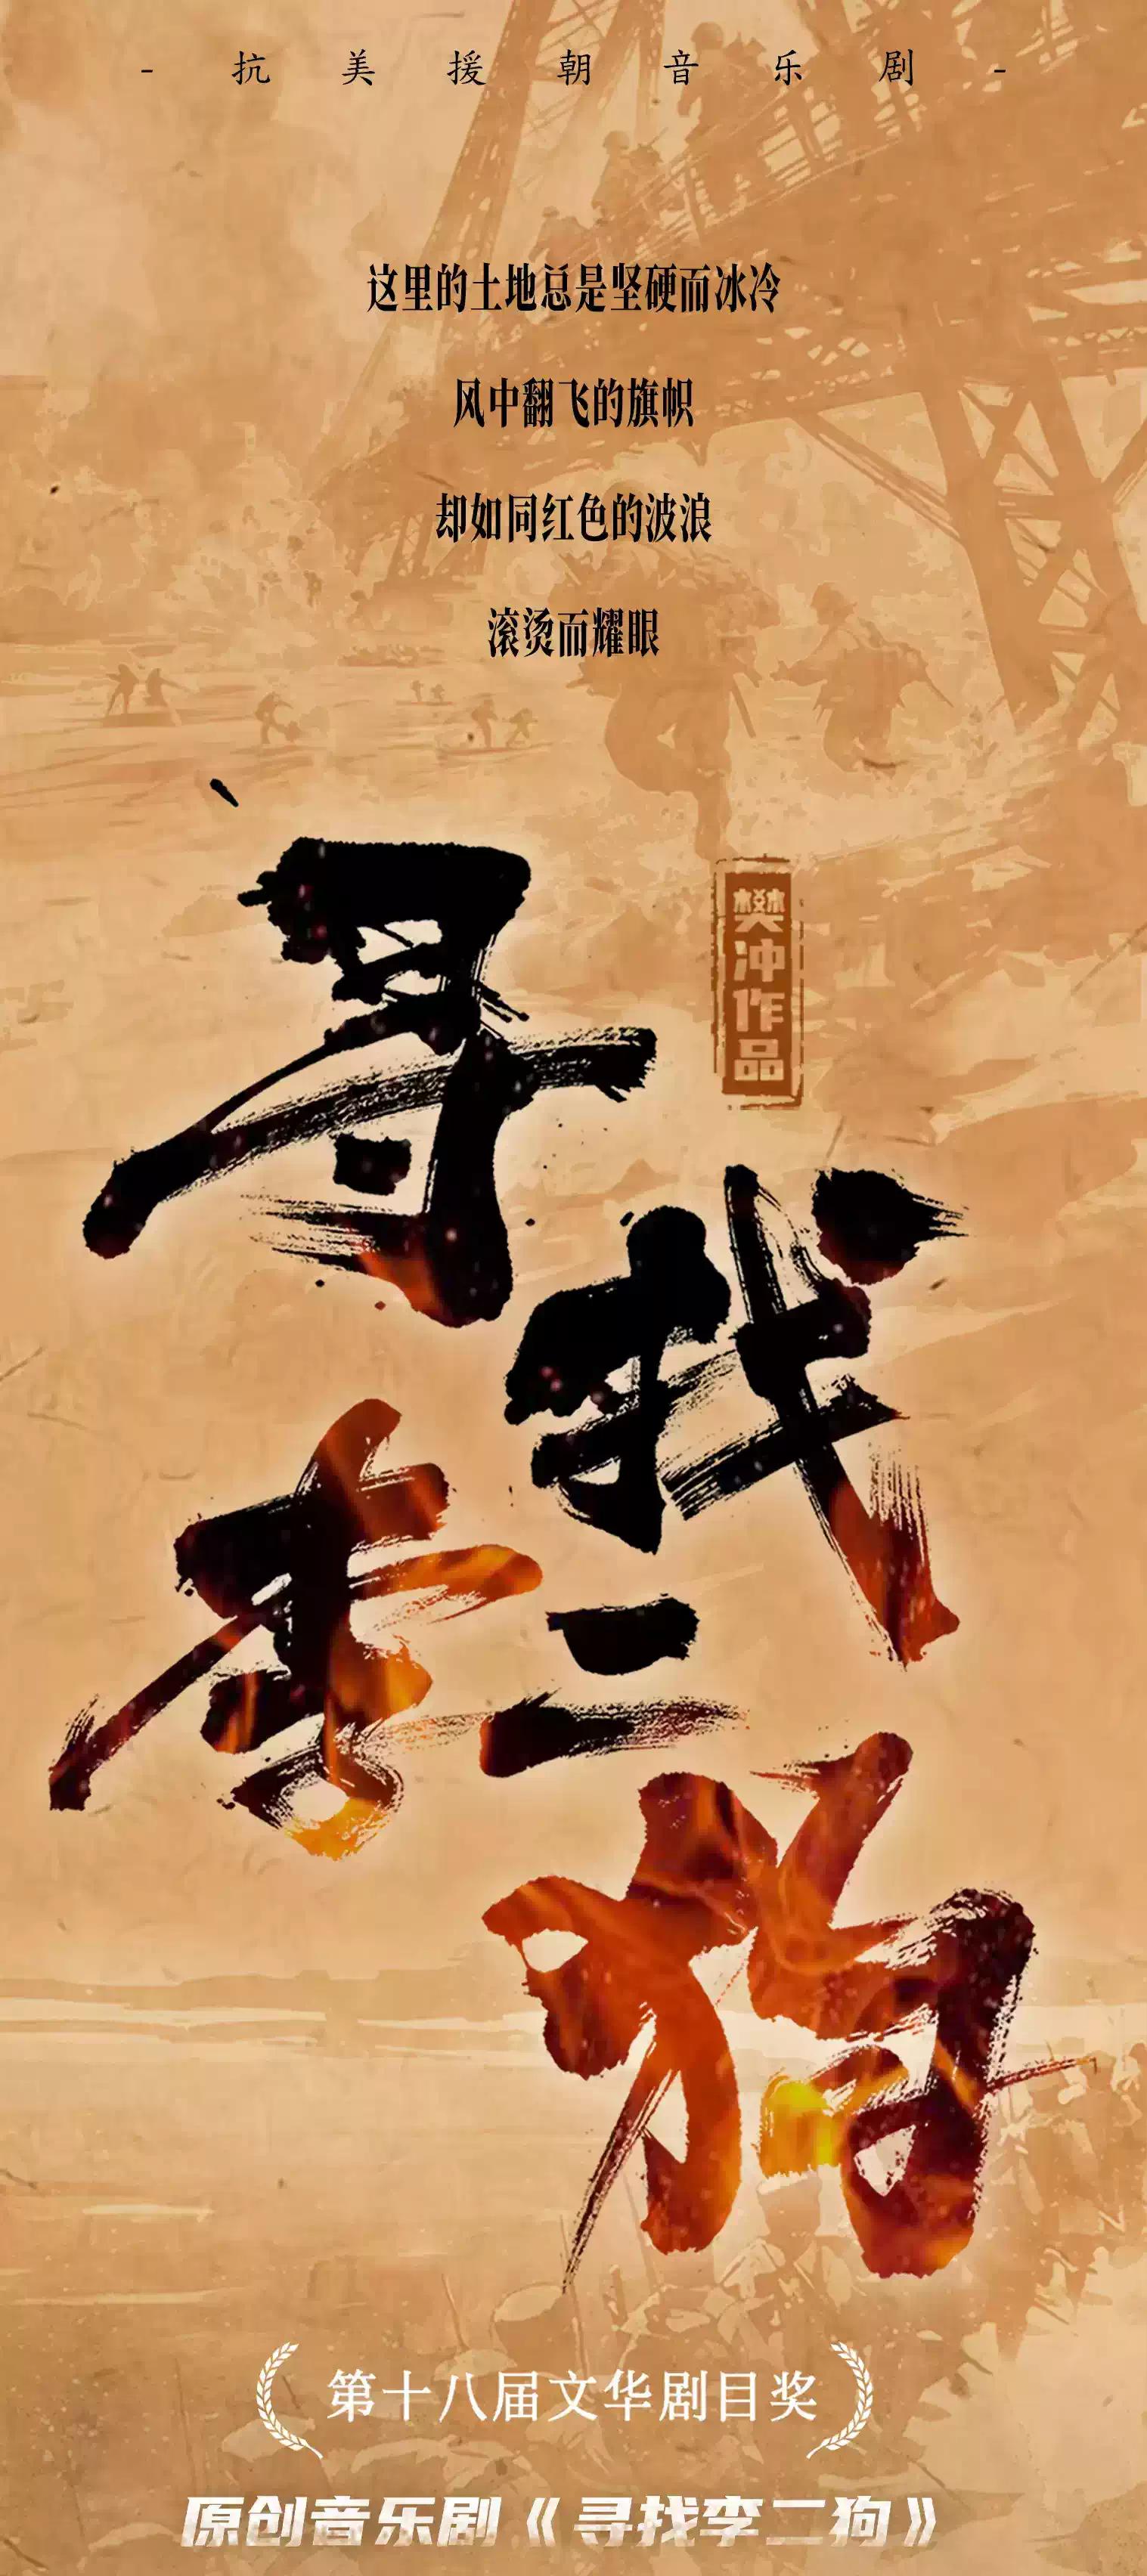 - 抗美援朝音乐剧 -
这里的土地总是坚硬而冰冷
风中翻飞的旗帜
却如同红色的波浪
滚烫而耀眼
樊冲作品
寻找
李二狗
第十八届文华剧目奖
原创音乐剧《寻找李二狗》